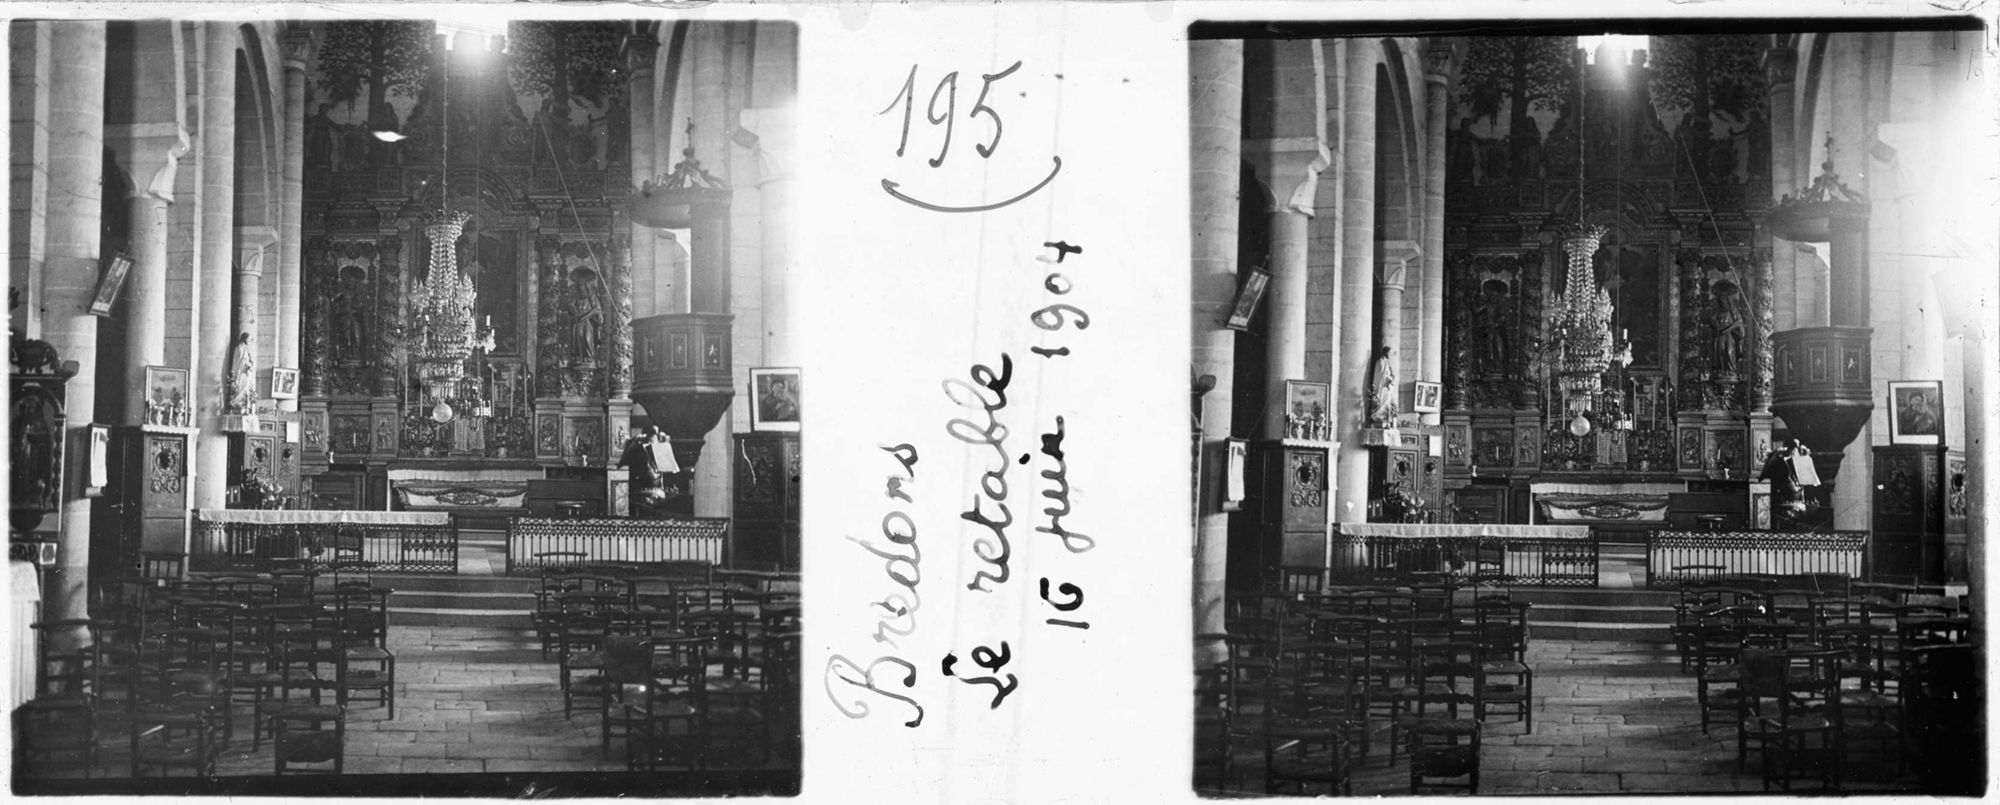 195
Bredons
Le retable
16 juin 1904